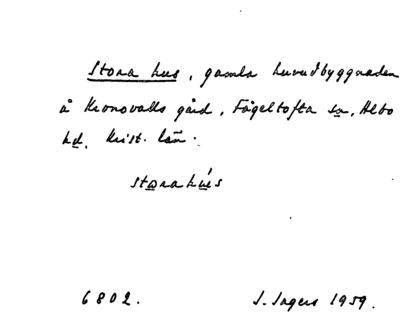 Stora hus, gamla huvudbyggnaden
å Kronovalls gård, Fågeltofta sn, Albo
hd, Krist. län.
storahús
6802.
S. Sagers 1959.